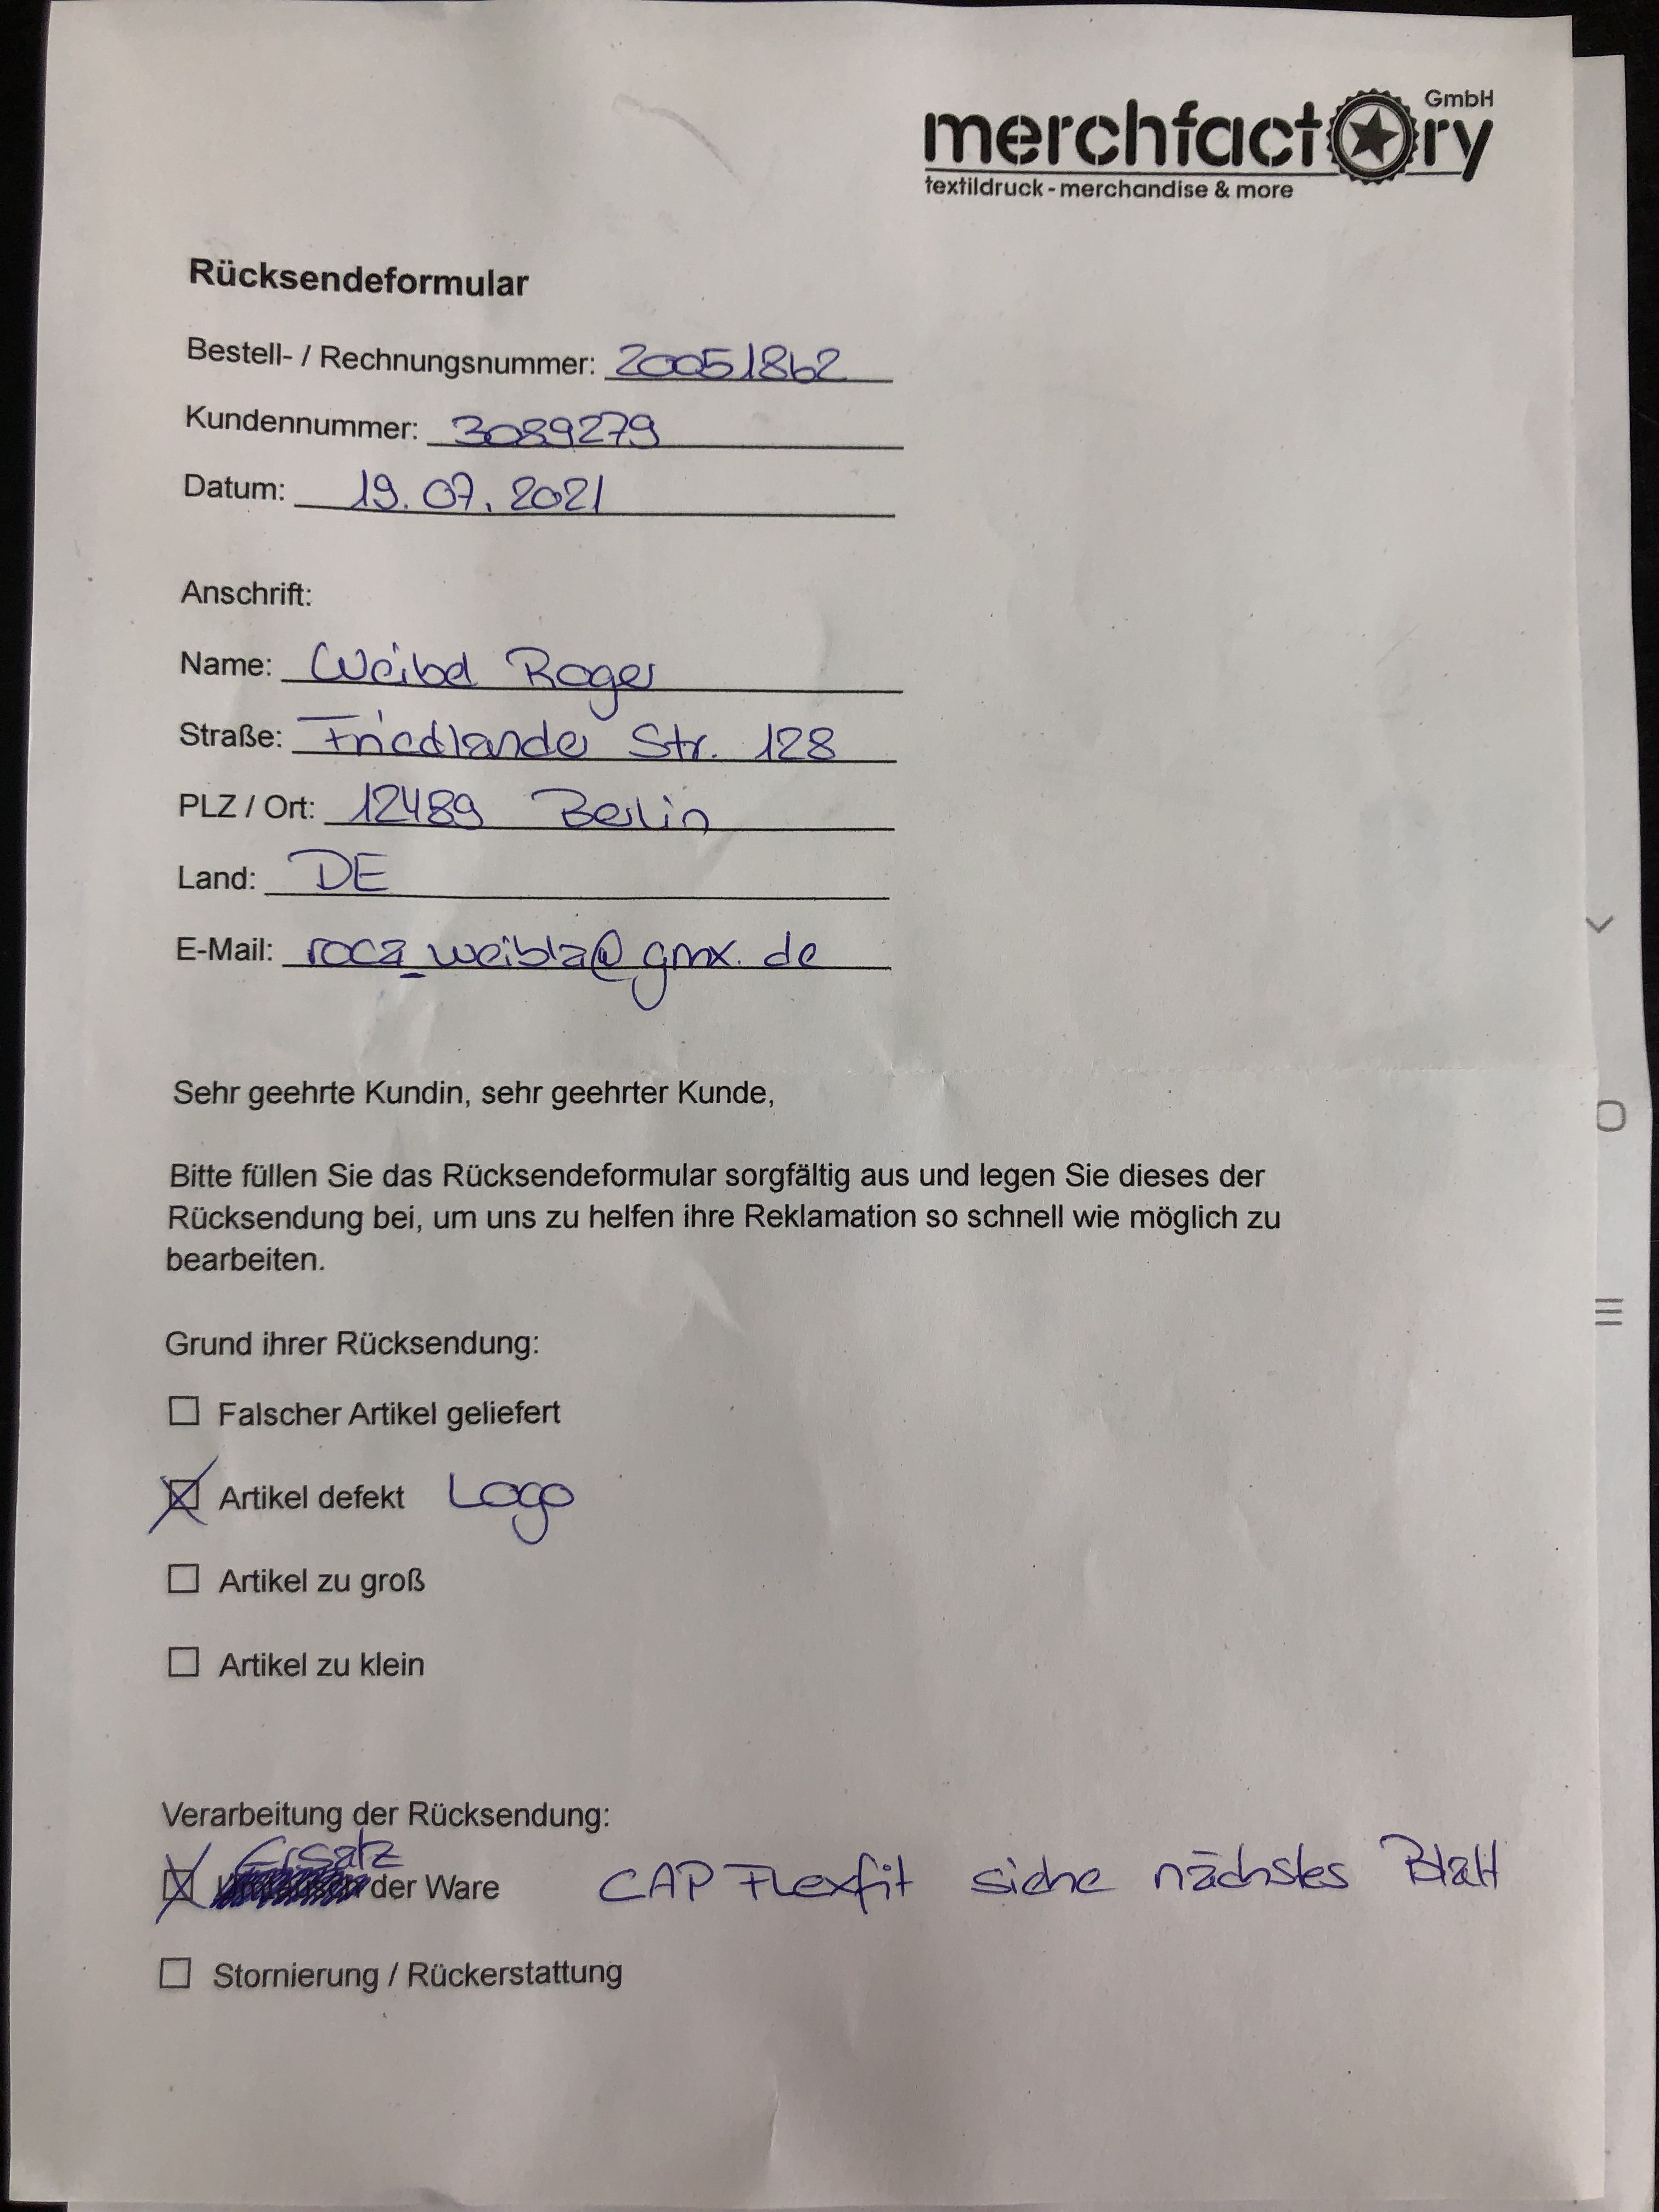 merchfactory GmbH
textildruck - merchandise & more
Rücksendeformular
Bestell- / Rechnungsnummer: 20051862
Kundennummer: 3089279
Datum: 19.07.2021
Anschrift:
Name: Weibel Roger
Straße: Friedlander Str. 128
PLZ / Ort: 12489 Berlin
Land: DE
E-Mail: roca_weibla@gmx.de
Sehr geehrte Kundin, sehr geehrter Kunde,
Bitte füllen Sie das Rücksendeformular sorgfältig aus und legen Sie dieses der
Rücksendung bei, um uns zu helfen ihre Reklamation so schnell wie möglich zu
bearbeiten.
Grund ihrer Rücksendung:
Falscher Artikel geliefert
Artikel defekt Logo
Artikel zu groß
Artikel zu klein
Verarbeitung der Rücksendung:
Ersatz
der Ware CAP Flexfit siehe nächstes Blatt
Stornierung / Rückerstattung